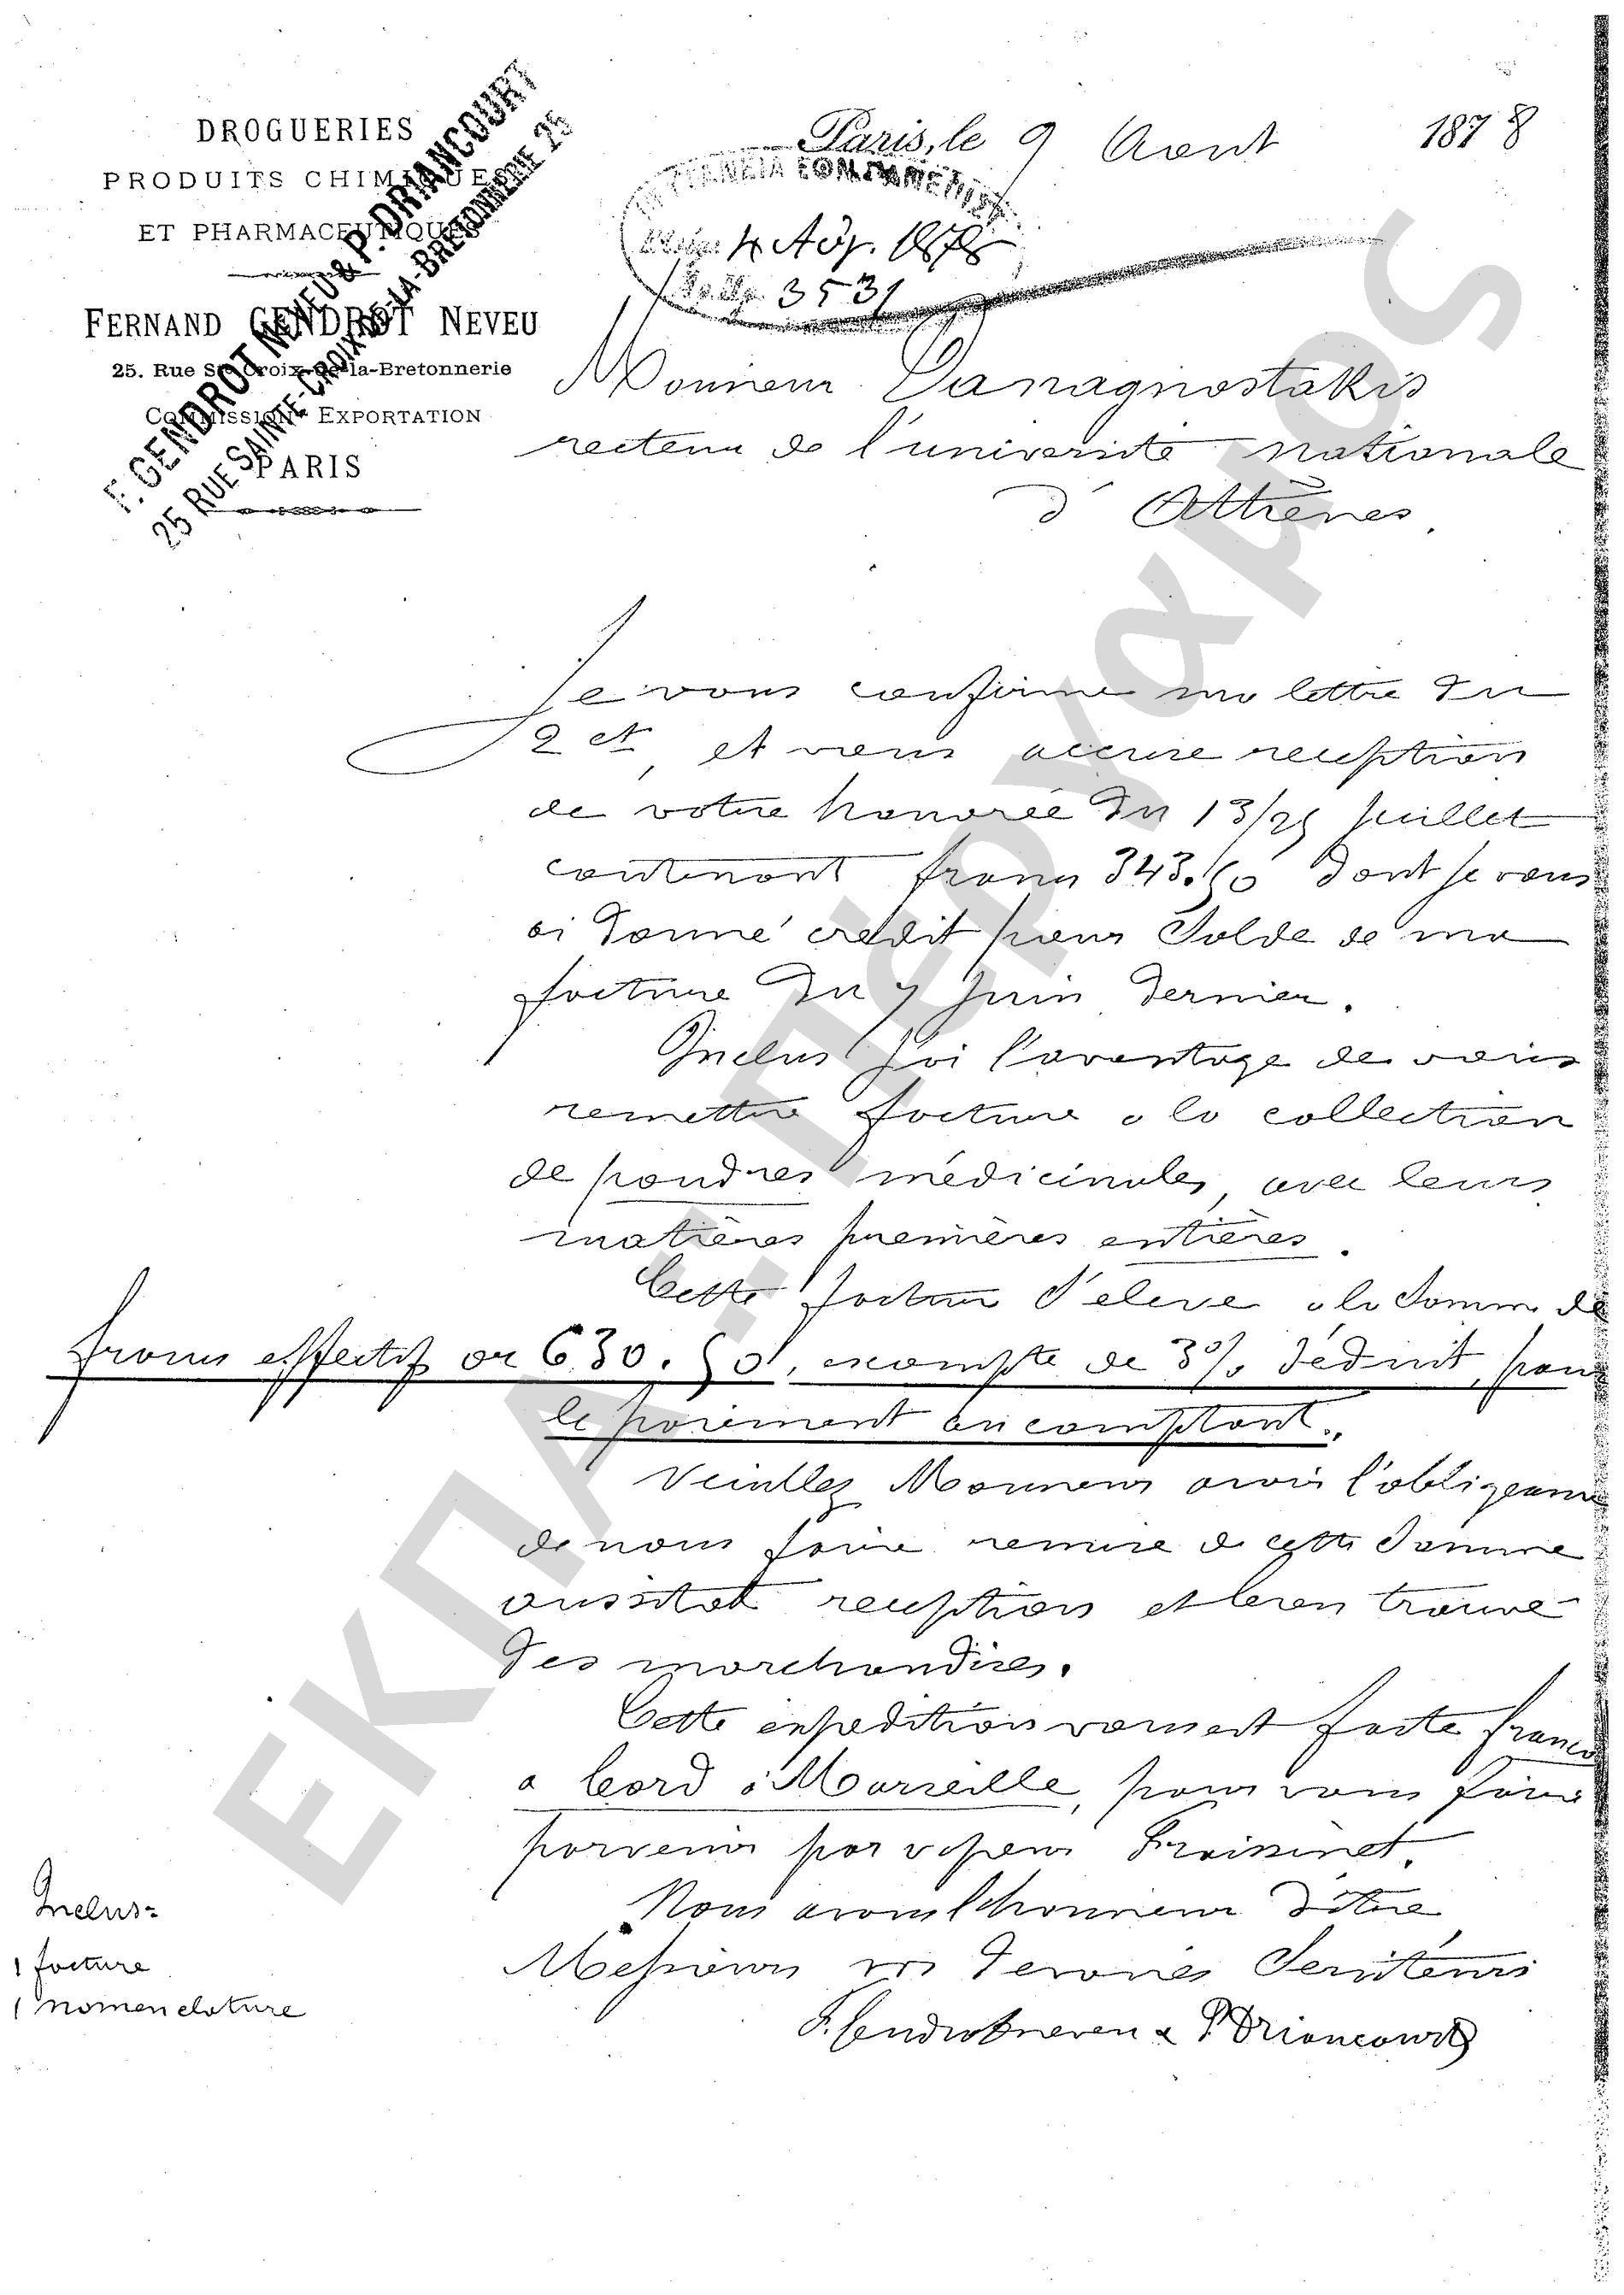 DROGUERIES
PRODUITS CHIMIQUES
ET PHARMACEUTIQUES
FERNAND GENDROT NEVEU
25. Rue Ste Croix-de-la-Bretonnerie
COMMISSION - EXPORTATION
PARIS
F. GENDROT NEVEU & P. DRIANCOURT
25 RUE SAINTE-CROIX-DE-LA-BRETONNERIE 25
Paris, le 9 Aout 1878
4 Αὐγ. 1878
3531
Monsieur Panagnostakis
recteur de l'université nationale
d'Athènes.
Je vous confirme ma lettre du
2 ct, et vous accuse reception
de votre honorée du 13/25 Juillet
contenant francs 343.50 dont je vous
ai donné credit pour Solde de ma
facture du 7 Juin dernier.
Inclus j'ai l'avantage de vous
remettre facture a la collection
de poudres médicinales, avec leurs
matières premières entières.
Cette facture s'eleve a la Somme de
francs effectif or 630.50, escompte de 3% déduit, pour
le paiement au comptant.
Veuillez Monsieur avoir l'obligeance
de nous faire remise de cette Somme
aussitot reception et bien trouvé
des marchandises.
Cette expedition vous est faite franco
a bord a Marseille, pour vous faire
parvenir par vapeur Fraissinet.
Nous avons l'honneur d'être
Messieurs vos devoués Serviteurs
F. Gendrot neveu & P. Driancourt
Inclus=
1 facture
1 nomenclature
ΕΚΠΑ - Πέργαμος